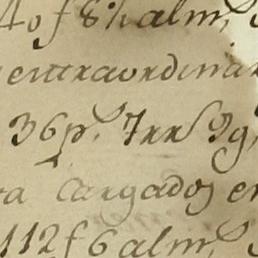 4 of 8½ alm.s
extraordinar
36p.s 7rr.s
ta Cargados en
112f 6 alm.s